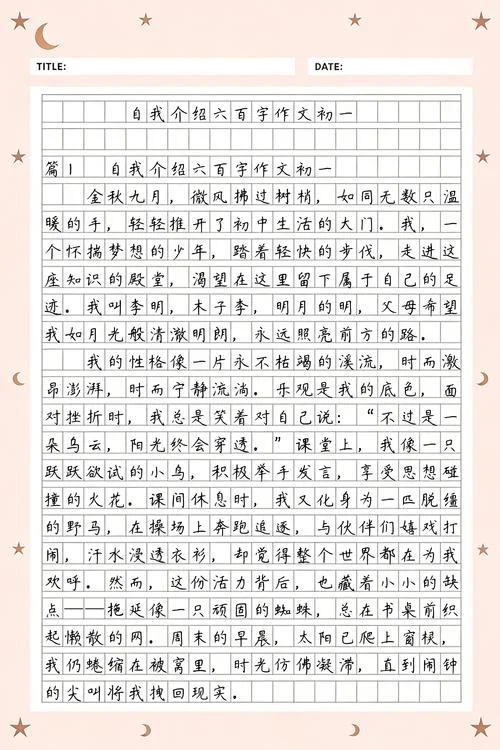 TITLE: DATE:
自我介绍六百字作文初一
篇1 自我介绍六百字作文初一
金秋九月，微风拂过树梢，如同无数只温
暖的手，轻轻推开了初中生活的大门。我，一
个怀揣梦想的少年，踏着轻快的步伐，走进这
座知识的殿堂，渴望在这里留下属于自己的足
迹。我叫李明，木子李，明月的明，父母希望
我如月光般清澈明朗，永远照亮前方的路。
我的性格像一片永不枯竭的溪流，时而激
昂澎湃，时而宁静流淌。乐观是我的底色，面
对挫折时，我总是笑着对自己说：“不过是一
朵乌云，阳光终会穿透。”课堂上，我像一只
跃跃欲试的小鸟，积极举手发言，享受思想碰
撞的火花。课间休息时，我又化身为一匹脱缰
的野马，在操场上奔跑追逐，与伙伴们嬉戏打
闹，汗水浸透衣衫，却觉得整个世界都在为我
欢呼。然而，这份活力背后，也藏着小小的缺
点——拖延像一只顽固的蜘蛛，总在书桌前织
起懒散的网。周末的早晨，太阳已爬上窗棂，
我仍蜷缩在被窝里，时光仿佛凝滞，直到闹钟
的尖叫将我拽回现实。